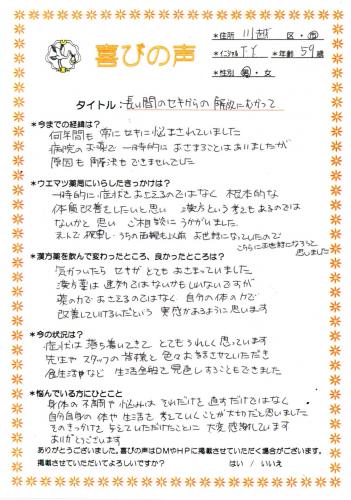 喜びの声
*住所 川越 区・市
*イニシャル T.Y *年齢 59歳
*性別 男・女
タイトル：長い間のセキからの解放にむかって
*今までの経緯は？
何年間も常にセキに悩まされていました
病院のお薬で一時的におさまることはありましたが
原因も解決もできませんでした
*ウエマツ薬局にいらしたきっかけは？
一時的に症状をおさえるのではなく 根本的な
体質改善をしたいと思い 漢方という考えもあるのでは
ないかと思い ご相談にうかがいました。
そして検索し うちの両親も以前お世話になっていたので
こちらにお世話になろうと
思いました
*漢方薬を飲んで変わったところ、良かったところは？
気がついたら セキがとてもおさまっていました
漢方薬は速効ではないかもしれないですが
薬の力でおさえるのではなく 自分の体の力で
改善していけるんだという 実感があるように思います
*今の状況は？
症状は落ち着いてきて とてもうれしく思っています
先生やスタッフの皆様と 色々お話させていただき
食生活など 生活全般で見直しすることもできました
*悩んでいる方にひとこと
身体の不調や悩みは それだけを直すだけではなく
自分自身の体や生活を考えていくことが大切だと思いました
そのきっかけを与えていただけたことに 大変感謝しています
ありがとうございます
ありがとうございました。喜びの声はDMやHPに掲載させていただく場合がございます。
掲載させていただいてよろしいですか？ はい / いいえ